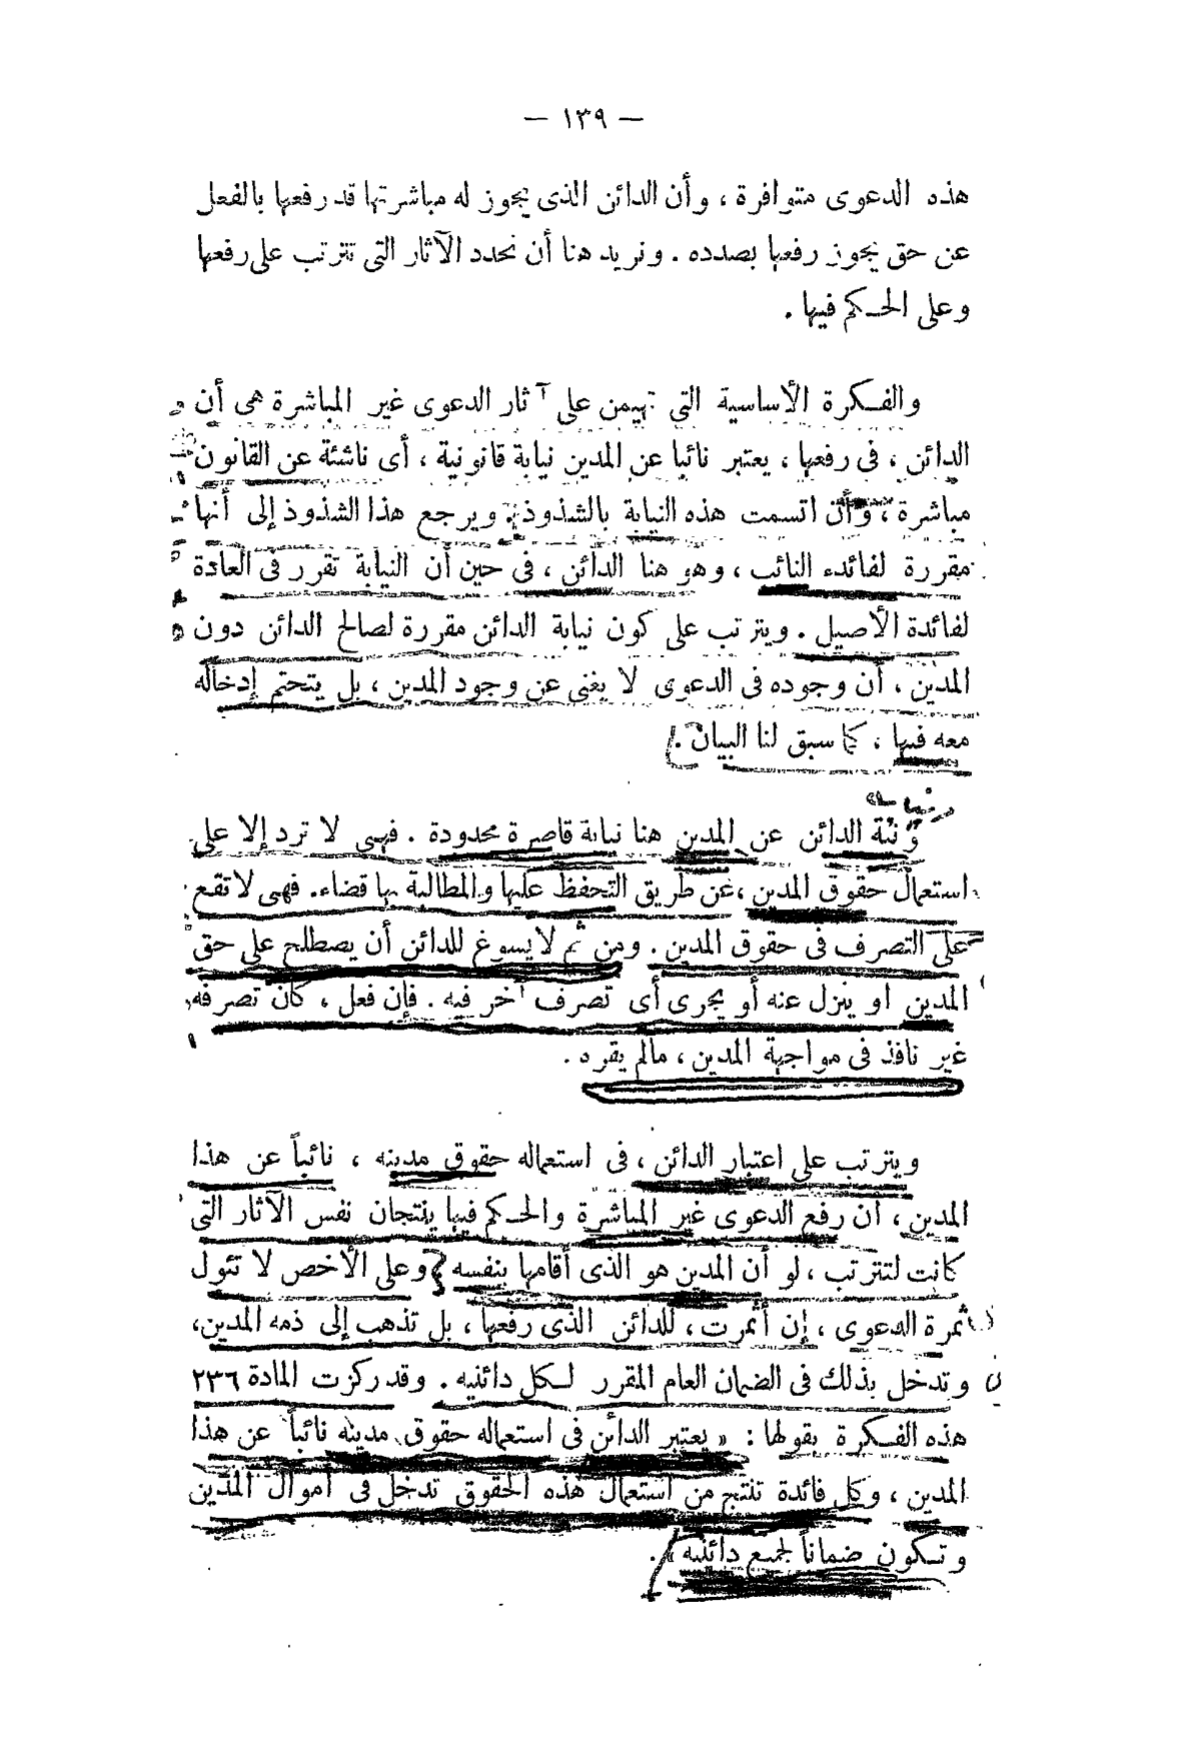 — ١٣٩ —
هذه الدعوى متوافرة ، وأن الدائن الذى يجوز له مباشرتها قد رفعها بالفعل
عن حق يجوز رفعها بصدده . ونريد هنا أن نحدد الآثار التى تترتب على رفعها
وعلى الحكم فيها .
والفكرة الأساسية التى تهيمن على آثار الدعوى غير المباشرة هى أن
الدائن ، فى رفعها ، يعتبر نائبا عن المدين نيابة قانونية ، أى ناشئة عن القانون
مباشرة ، وأن اتسمت هذه النيابة بالشذوذ . ويرجع هذا الشذوذ إلى أنها
مقررة لفائدة النائب ، وهو هنا الدائن ، فى حين أن النيابة تقرر فى العادة
لفائدة الأصيل . ويترتب على كون نيابة الدائن مقررة لصالح الدائن دون
المدين ، أن وجوده فى الدعوى لا يغنى عن وجود المدين ، بل يتحتم إدخاله
معه فيها ، كما سبق لنا البيان .
الدائن عن المدين هنا نيابة قاصرة محدودة . فهى لا ترد إلا على
استعمال حقوق المدين ، عن طريق التحفظ عليها والمطالبة بها قضاء . فهى لا تقع
على التصرف فى حقوق المدين . ومن ثم لا يسوغ للدائن أن يصطلح على حق
المدين أو ينزل عنه أو يجرى أى تصرف آخر فيه . فإن فعل ، كان تصرفه
غير نافذ فى مواجهة المدين ، مالم يقره .
ويترتب على اعتبار الدائن ، فى استعماله حقوق مدينه ، نائباً عن هذا
المدين ، أن رفع الدعوى غير المباشرة والحكم فيها ينتجان نفس الآثار التى
كانت لتترتب ، لو أن المدين هو الذى أقامها بنفسه وعلى الأخص لا تئول
ثمرة الدعوى ، إن أثمرت ، للدائن الذى رفعها ، بل تذهب إلى ذمة المدين ،
وتدخل بذلك فى الضمان العام المقرر لكل دائنيه . وقد ركزت المادة ٢٣٦
هذه الفكرة بقولها : « يعتبر الدائن فى استعماله حقوق مدينه نائباً عن هذا
المدين ، وكل فائدة تنتج من استعمال هذه الحقوق تدخل فى أموال المدين
وتكون ضماناً لجميع دائنيه » .